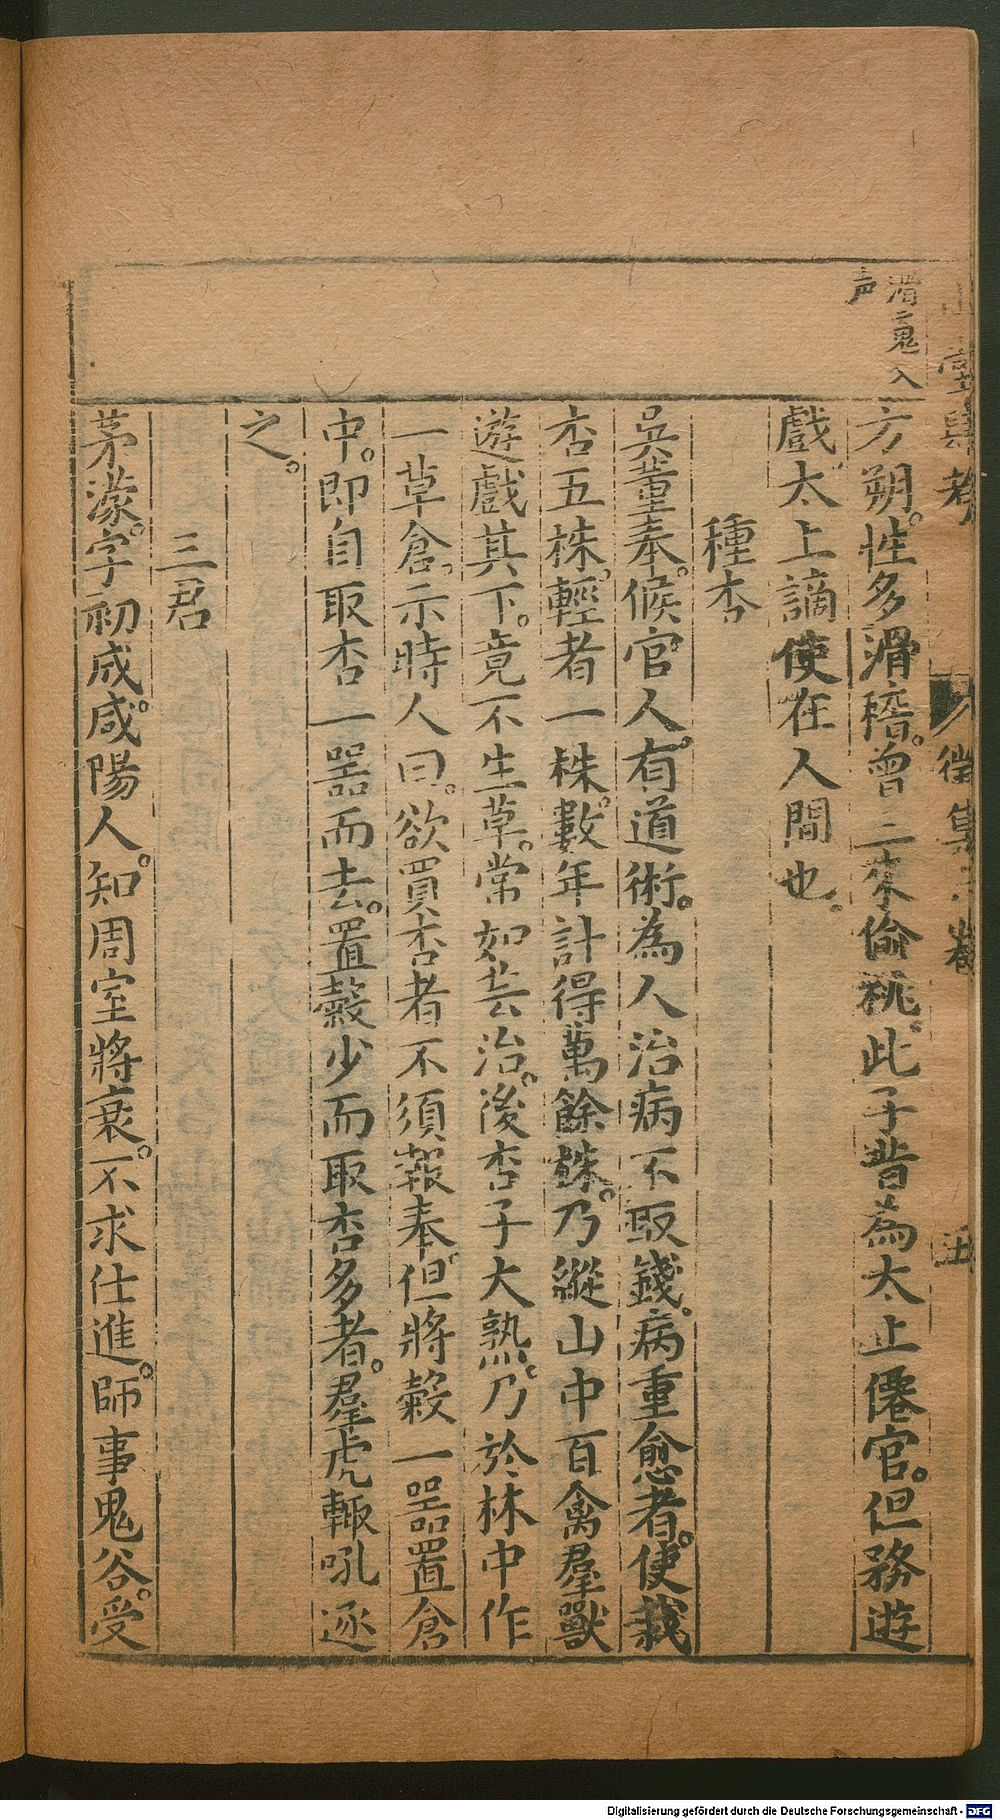 滑音鬼入
声
方朔。性多滑稽。曾三來偷桃。此子昔為太上僊官。但務遊
戲太上謫使在人間也。
種杏
吳董奉。候官人。有道術。為人治病不取錢。病重愈者。使栽
杏五株。輕者一株。數年計得萬餘株。乃縱山中百禽羣獸
遊戲其下。竟不生草。常如芸治。後杏子大熟。乃於林中作
一草倉。示時人曰。欲買杏者不須報奉。但將穀一器置倉
中。即自取杏一器而去。置穀少而取杏多者。羣虎輙吼逐
之。
三君
茅濛。字初成。咸陽人。知周室將衰。不求仕進。師事鬼谷。受
Digitalisierung gefördert durch die Deutsche Forschungsgemeinschaft - DFG